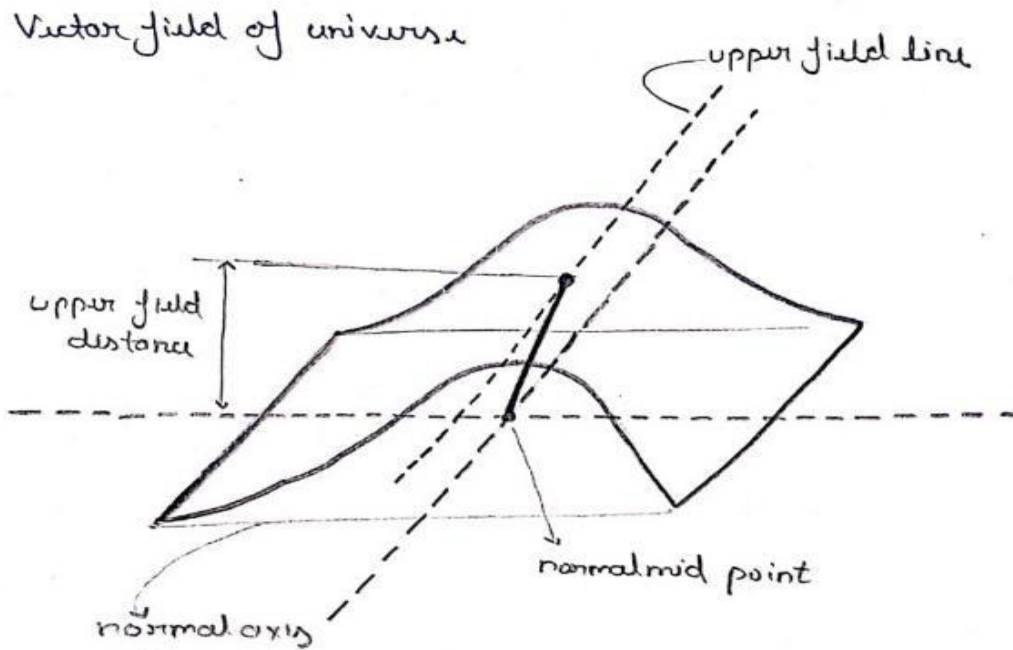 Vector field of universe
upper field line
upper field
distance
normal mid point
normal axis